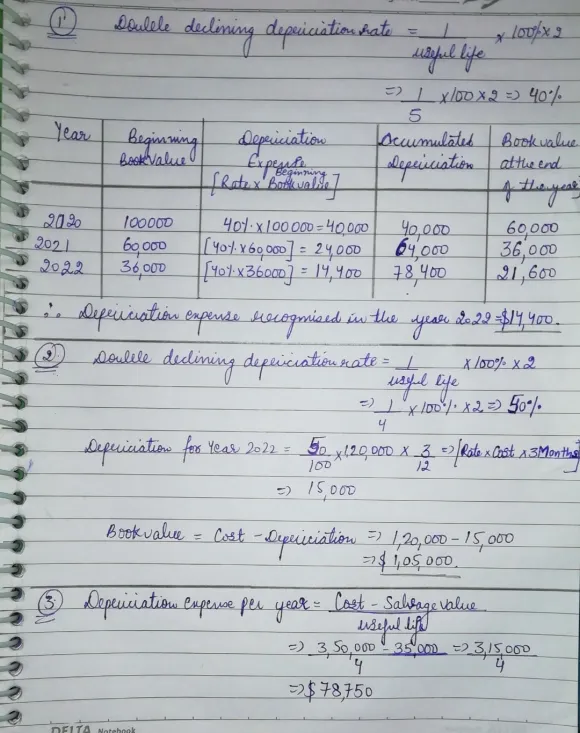 1 Double declining depreciation rate = 1/useful life x 100% x 2
=> 1/5 x 100 x 2 => 40%
Year | Beginning Book Value | Depreciation Expense [Rate x Beginning Book value] | Accumulated Depreciation | Book value at the end of the year
2020 | 100000 | 40% x 100000 = 40,000 | 40,000 | 60,000
2021 | 60,000 | [40% x 60,000] = 24,000 | 64,000 | 36,000
2022 | 36,000 | [40% x 36000] = 14,400 | 78,400 | 21,600
∴ Depreciation expense recognised in the year 2022 = $14,400.
2 Double declining depreciation rate = 1/useful life x 100% x 2
=> 1/4 x 100% x 2 => 50%
Depreciation for Year 2022 = 50/100 x 120,000 x 3/12 => [Rate x Cost x 3 Months]
=> 15,000
Book value = Cost - Depreciation => 1,20,000 - 15,000
=> $ 1,05,000.
3 Depreciation expense per year = Cost - Salvage value/useful life
=> 3,50,000 - 35,000/4 => 3,15,000/4
=> $ 78,750
DELTA Notebook